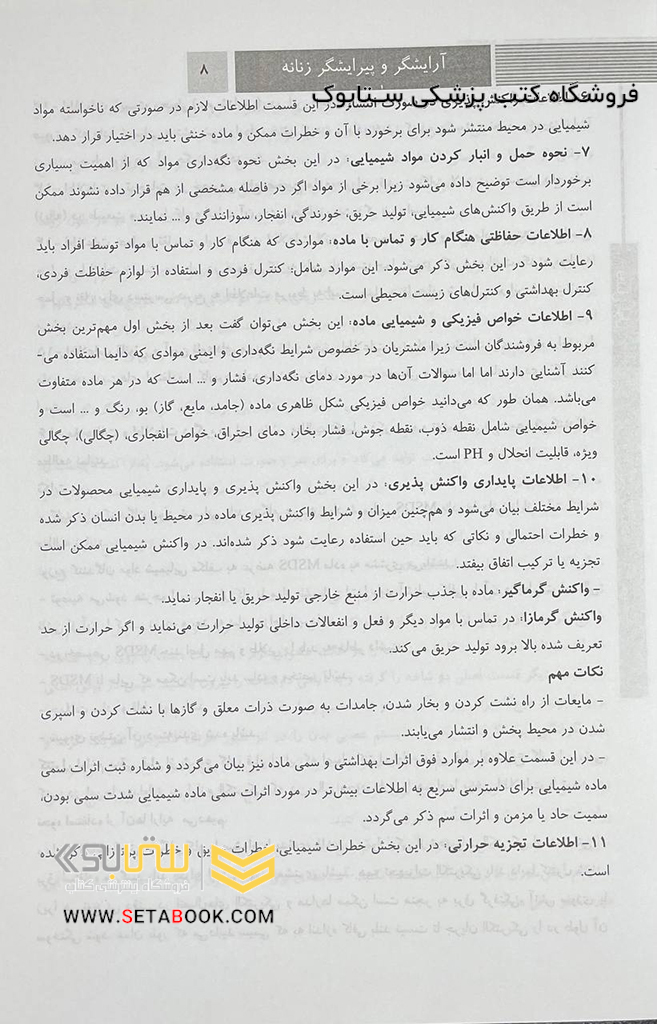 آرایشگر و پیرایشگر زنانه
۸
فروشگاه کتب پزشکی ستابوک
در صورت انتشار: در این قسمت اطلاعات لازم در صورتی که ناخواسته مواد
شیمیایی در محیط منتشر شود برای برخورد با آن و خطرات ممکن و ماده خنثی باید در اختیار قرار دهد.
۷- نحوه حمل و انبار کردن مواد شیمیایی: در این بخش نحوه نگه‌داری مواد که از اهمیت بسیاری
برخوردار است توضیح داده می‌شود زیرا برخی از مواد اگر در فاصله مشخصی از هم قرار داده نشوند ممکن
است از طریق واکنش‌های شیمیایی، تولید حریق، خورندگی، انفجار، سوزانندگی و ... نمایند.
۸- اطلاعات حفاظتی هنگام کار و تماس با ماده: مواردی که هنگام کار و تماس با مواد توسط افراد باید
رعایت شود در این بخش ذکر می‌شود. این موارد شامل: کنترل فردی و استفاده از لوازم حفاظت فردی،
کنترل بهداشتی و کنترل‌های زیست محیطی است.
۹- اطلاعات خواص فیزیکی و شیمیایی ماده: این بخش می‌توان گفت بعد از بخش اول مهم‌ترین بخش
مربوط به فروشندگان است زیرا مشتریان در خصوص شرایط نگه‌داری و ایمنی موادی که دایما استفاده می-
کنند آشنایی دارند اما اما سوالات آن‌ها در مورد دمای نگه‌داری، فشار و ... است که در هر ماده متفاوت
می‌باشد. همان طور که می‌دانید خواص فیزیکی شکل ظاهری ماده (جامد، مایع، گاز) بو، رنگ و ... است و
خواص شیمیایی شامل نقطه ذوب، نقطه جوش، فشار بخار، دمای احتراق، خواص انفجاری، (چگالی)، چگالی
ویژه، قابلیت انحلال و PH است.
۱۰- اطلاعات پایداری واکنش پذیری: در این بخش واکنش پذیری و پایداری شیمیایی محصولات در
شرایط مختلف بیان می‌شود و هم‌چنین میزان و شرایط واکنش پذیری ماده در محیط یا بدن انسان ذکر شده
و خطرات احتمالی و نکاتی که باید حین استفاده رعایت شود ذکر شده‌اند. در واکنش شیمیایی ممکن است
تجزیه یا ترکیب اتفاق بیفتد.
- واکنش گرماگیر: ماده با جذب حرارت از منبع خارجی تولید حریق یا انفجار نماید.
واکنش گرمازا: در تماس با مواد دیگر و فعل و انفعالات داخلی تولید حرارت می‌نماید و اگر حرارت از حد
تعریف شده بالا برود تولید حریق می‌کند.
نکات مهم
- مایعات از راه نشت کردن و بخار شدن، جامدات به صورت ذرات معلق و گازها با نشت کردن و اسپری
شدن در محیط پخش و انتشار می‌یابند.
- در این قسمت علاوه بر موارد فوق اثرات بهداشتی و سمی ماده نیز بیان می‌گردد و شماره ثبت اثرات سمی
ماده شیمیایی برای دسترسی سریع به اطلاعات بیش‌تر در مورد اثرات سمی ماده شیمیایی شدت سمی بودن،
سمیت حاد یا مزمن و اثرات سم ذکر می‌گردد.
۱۱- اطلاعات تجزیه حرارتی: در این بخش خطرات شیمیایی، خطرات حریق و خطرات
است.
ستابوک
فروشگاه اینترنتی کتاب
WWW.SETABOOK.COM